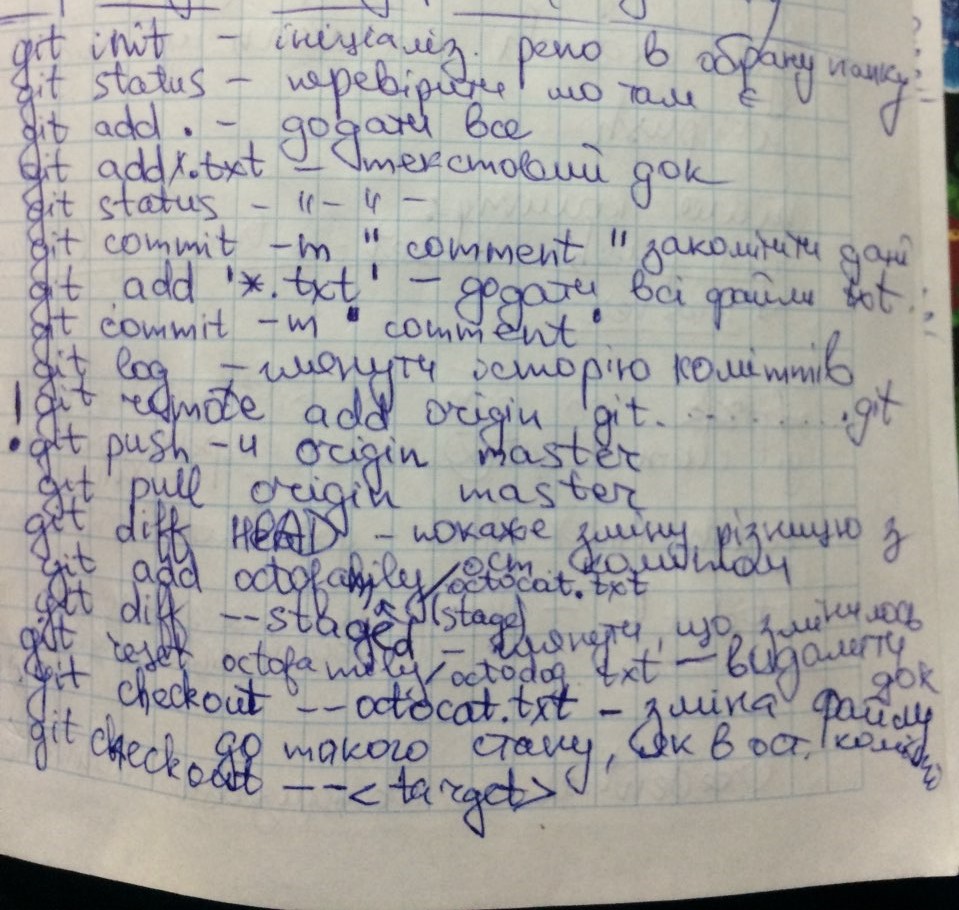 git init - ініціаліз. репо в обрану папку
git status - перевірити що там є
git add . - додати все
git addX.txt - текстовий док
git status - " - " -
git commit -m " comment " закомітити дані
git add '*.txt' - додати всі файли txt.
git commit -m " comment "
git log - глянути історію коміттів
! git remote add origin git. . . . . . . . . .git
git push -u origin master
git pull origin master
git diff HEAD - покаже зміну різницю з
ост комітом
git add octofamily/octocat.txt
git diff --staged (stage) - глянути, що змінилось
git reset octofamily/octodog.txt - видалити
док
git checkout -- octocat.txt - зміна файлу
до такого стану, як в ост. коміт
git checkout --<target>